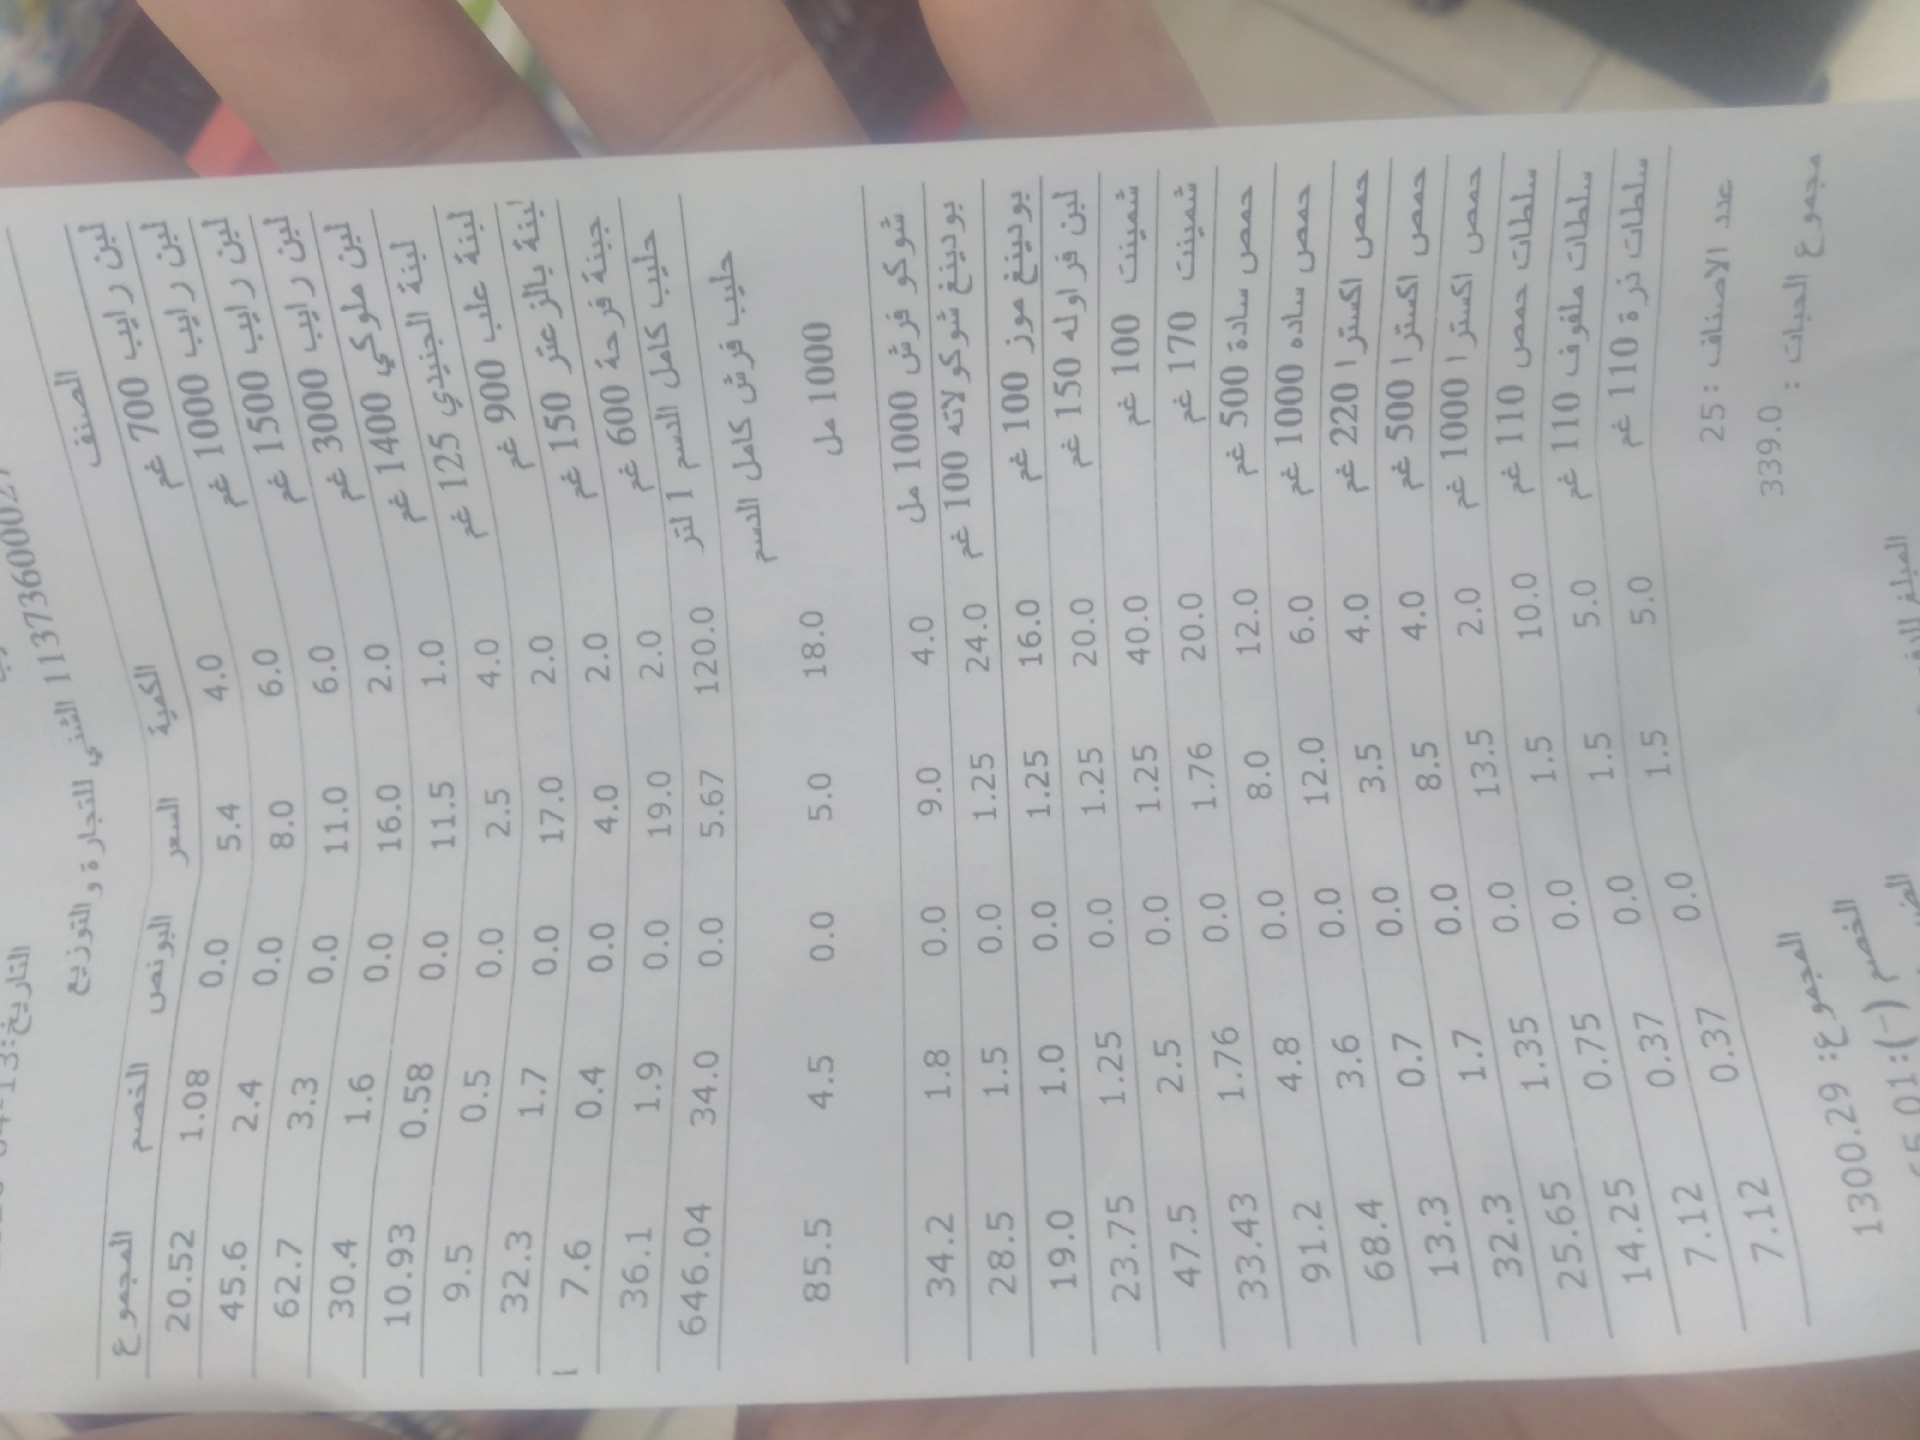 التاريخ:
1137360002 الثني للتجارة والتوزيع
الصنف الكمية السعر البونص الخصم المجموع
لبن رايب 700 غم 4.0 5.4 0.0 1.08 20.52
لبن رايب 1000 غم 6.0 8.0 0.0 2.4 45.6
لبن رايب 1500 غم 6.0 11.0 0.0 3.3 62.7
لبن رايب 3000 غم 2.0 16.0 0.0 1.6 30.4
لبن ملوكي 1400 غم 1.0 11.5 0.0 0.58 10.93
لبنة الجنيدي 125 غم 4.0 2.5 0.0 0.5 9.5
لبنة علب 900 غم 2.0 17.0 0.0 1.7 32.3
لبنة بالزعتر 150 غم 2.0 4.0 0.0 0.4 7.6
جبنة فرحة 600 غم 2.0 19.0 0.0 1.9 36.1
حليب كامل الدسم 1 لتر 120.0 5.67 0.0 34.0 646.04
حليب فرش كامل الدسم
1000 مل 18.0 5.0 0.0 4.5 85.5
شوكو فرش 1000 مل 4.0 9.0 0.0 1.8 34.2
بودينغ شوكولاته 100 غم 24.0 1.25 0.0 1.5 28.5
بودينغ موز 100 غم 16.0 1.25 0.0 1.0 19.0
لبن فراوله 150 غم 20.0 1.25 0.0 1.25 23.75
شمينت 100 غم 40.0 1.25 0.0 2.5 47.5
شمينت 170 غم 20.0 1.76 0.0 1.76 33.43
حمص سادة 500 غم 12.0 8.0 0.0 4.8 91.2
حمص ساده 1000 غم 6.0 12.0 0.0 3.6 68.4
حمص اكسترا 220 غم 4.0 3.5 0.0 0.7 13.3
حمص اكسترا 500 غم 4.0 8.5 0.0 1.7 32.3
حمص اكسترا 1000 غم 2.0 13.5 0.0 1.35 25.65
سلطات حمص 110 غم 10.0 1.5 0.0 0.75 14.25
سلطات ملفوف 110 غم 5.0 1.5 0.0 0.37 7.12
سلطات ذرة 110 غم 5.0 1.5 0.0 0.37 7.12
عدد الاصناف : 25
مجموع الحبات : 339.0
المجموع: 1300.29
الخصم (-):
المبلغ